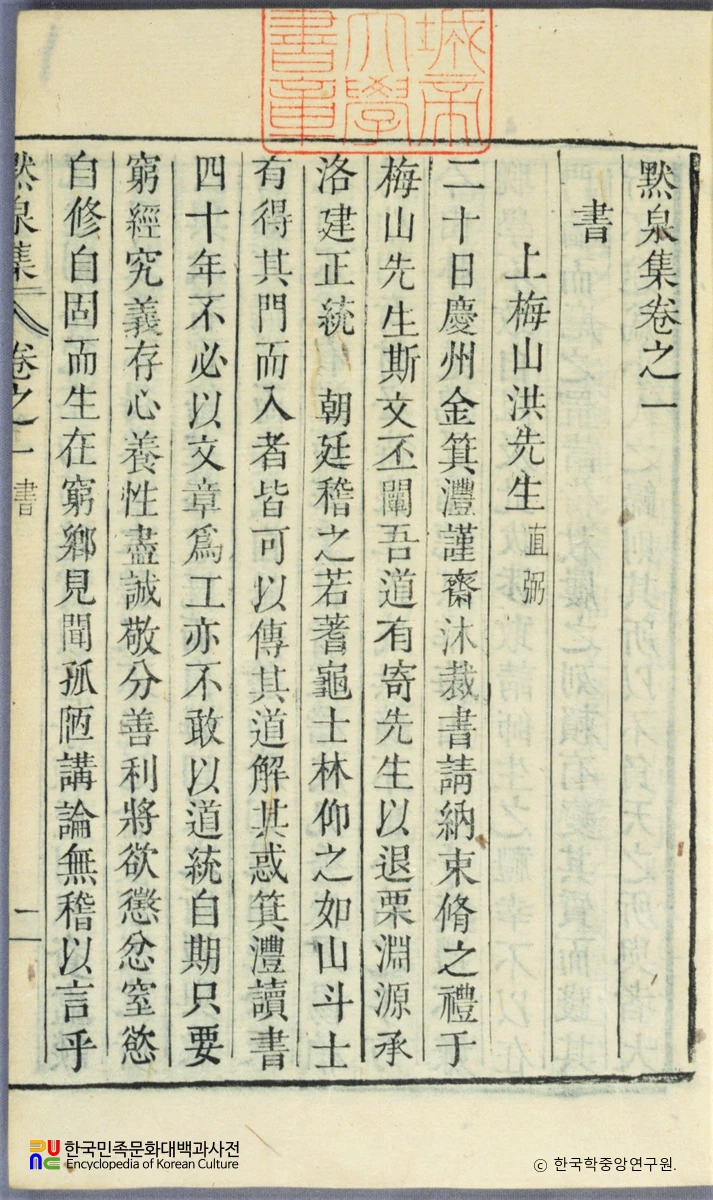 城帝
大學
書章
默泉集卷之一
書
上梅山洪先生 直弼
二十日慶州金箕灃謹齋沐裁書請納束脩之禮于
梅山先生斯文丕闡吾道有寄先生以退栗淵源承
洛建正統 朝廷稽之若蓍龜士林仰之如山斗士
有得其門而入者皆可以傳其道解其惑箕灃讀書
四十年不必以文章爲工亦不敢以道統自期只要
窮經究義存心養性盡誠敬分善利將欲懲忿窒慾
自修自固而生在窮鄉見聞孤陋講論無稽以言乎
默泉集 卷之一 書 二
한국민족문화대백과사전
Encyclopedia of Korean Culture
© 한국학중앙연구원.